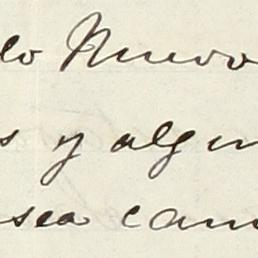 lo Nuevo
s y algun
sea cam